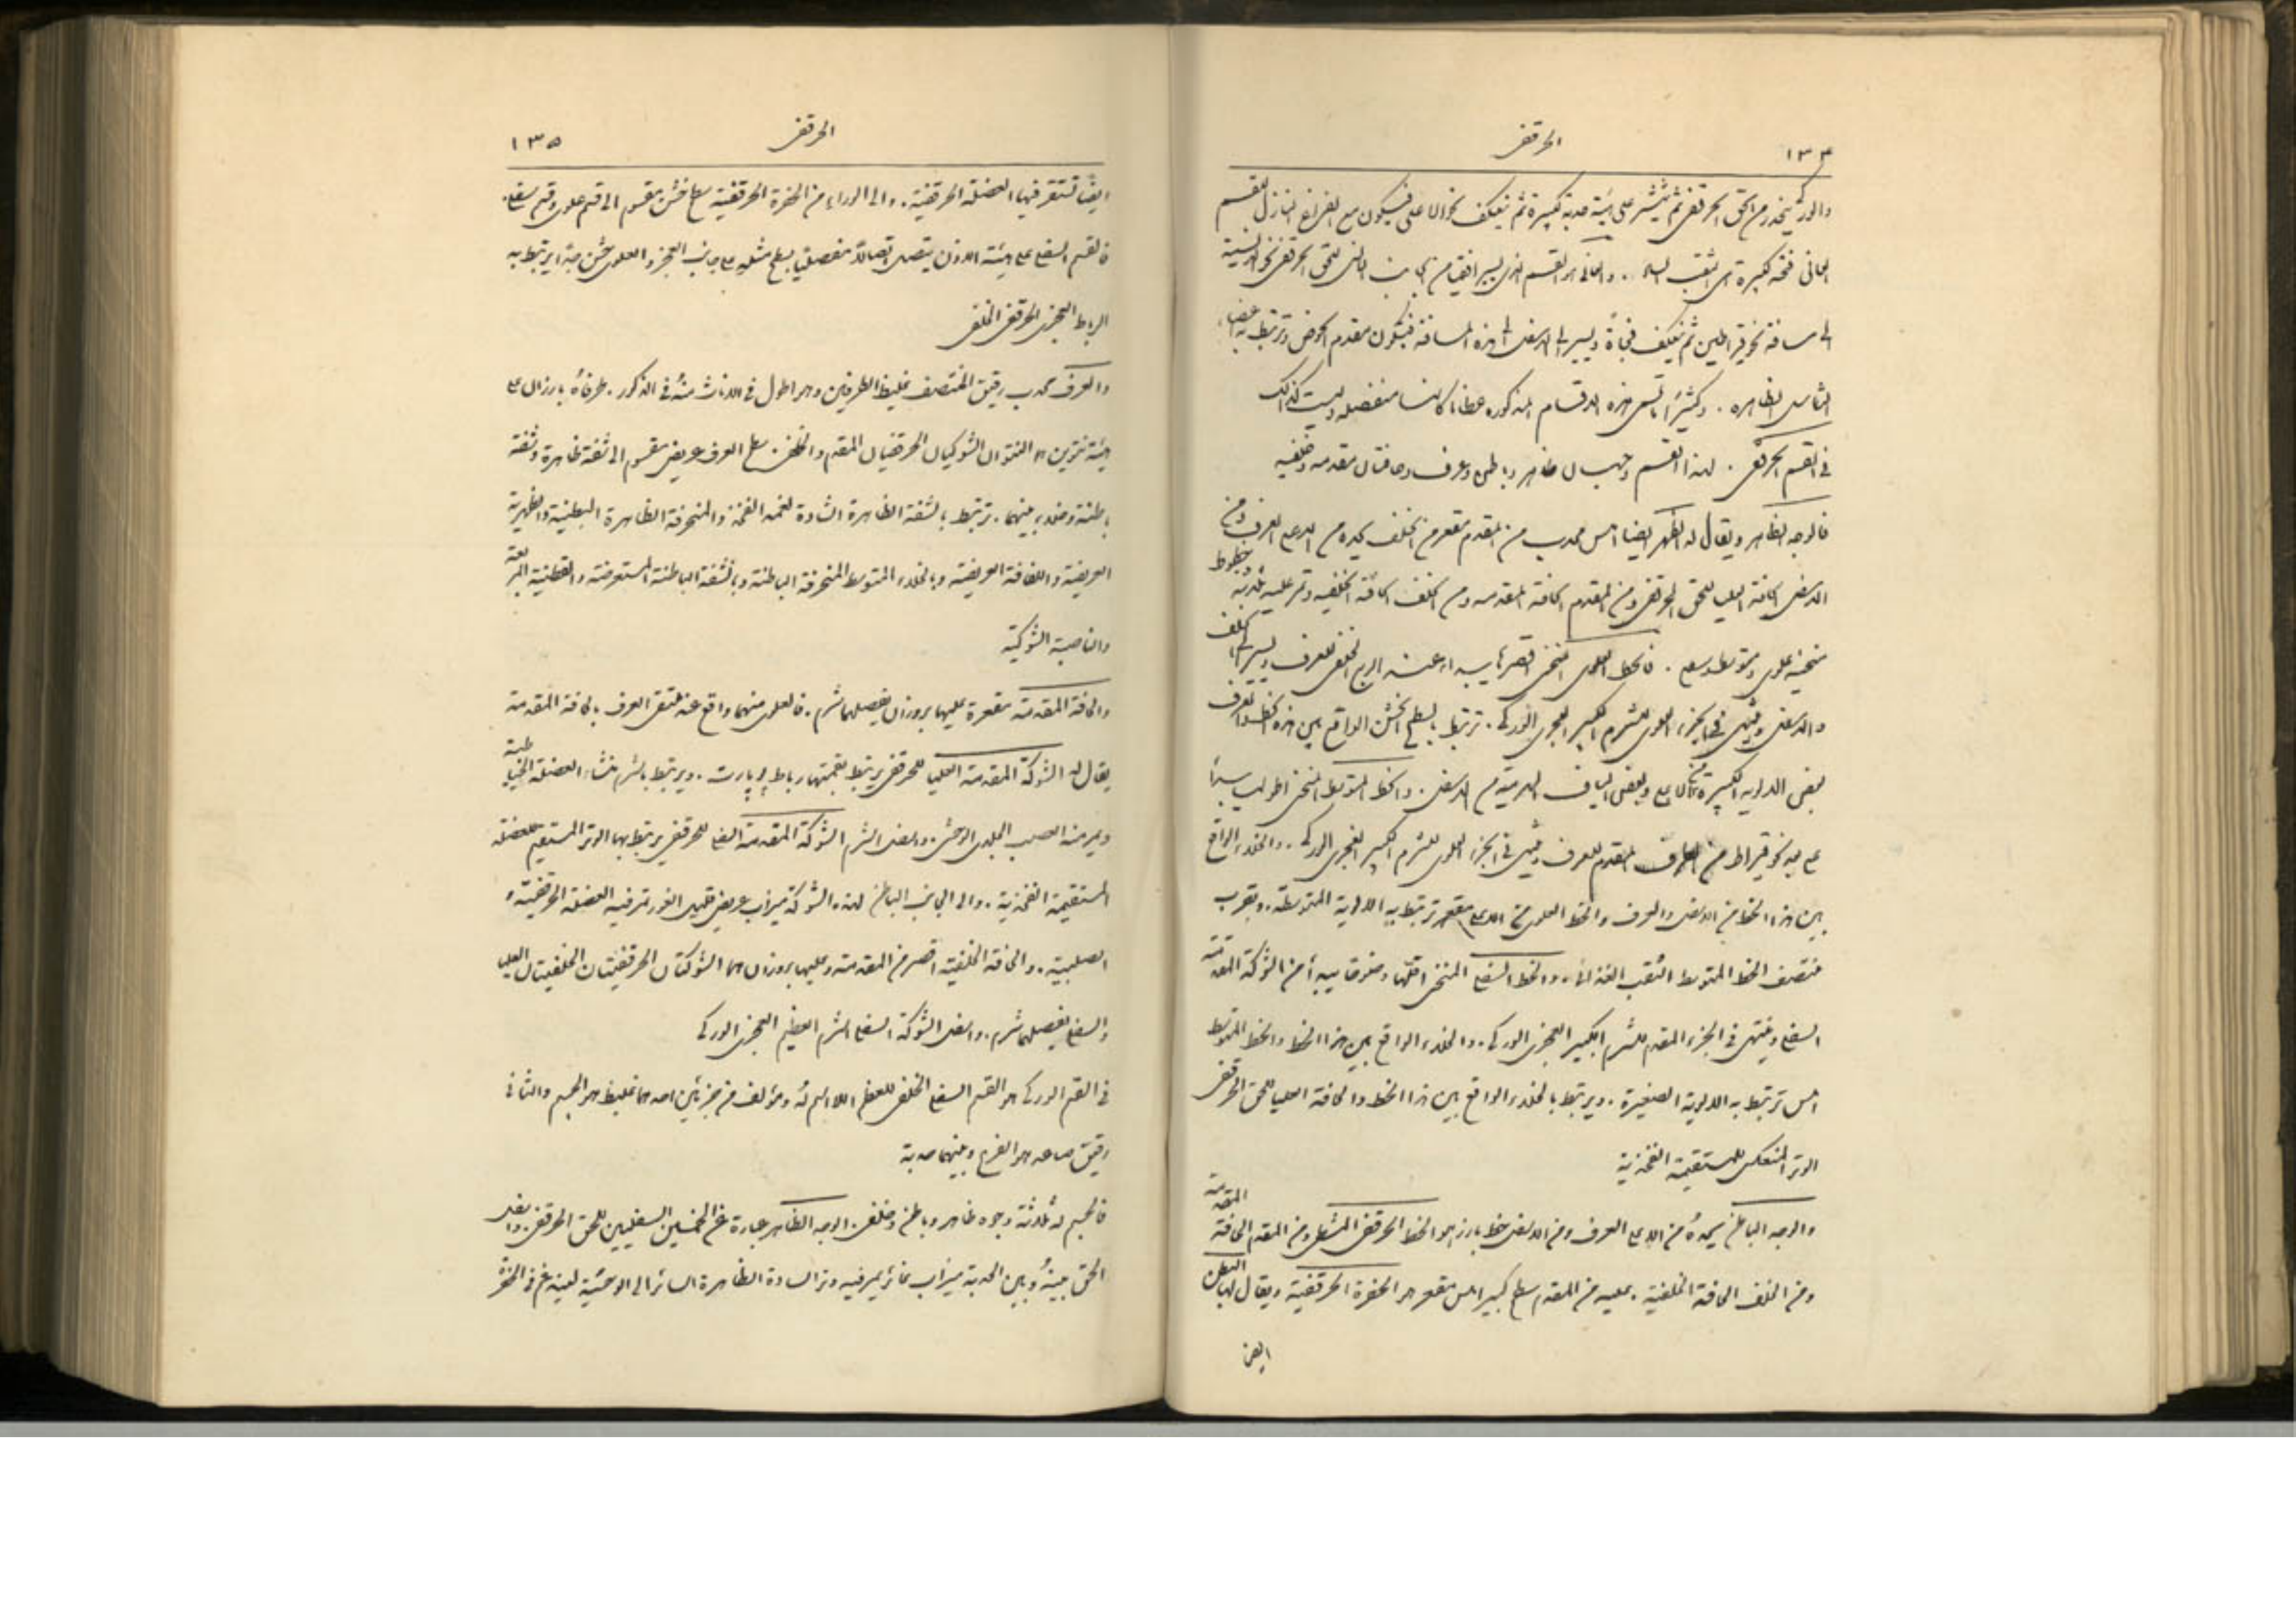 ١٣٤ الحرقفى
والورك ينحدر من الحق الحرقفى ثم ينتشر على هيئة حدبة كبيرة ثم ينعكف نحو الاعلى فيكون مع الفرع النازل للقسم
العانى فتحة كبيرة هى الثقب الساد . والعانى هو القسم الذى يسير افقيا من الجانب الانسى للحق الحرقفى نحو الانسية
الى مسافة نحو قيراطين ثم ينعكف فجأة ويسير الى الاسفل الى هذه المسافة فيكون مقدم الحوض وترتبط به اعضاء
التناسل الظاهرة . وكثيرًا ما تسمى هذه الاقسام المذكورة عظاما كانها منفصلة وليست كذلك
فى القسم الحرقفى . لهذا القسم وجهان ظاهر وباطن وعرف وحافتان مقدمة وخلفية
فالوجه الظاهر ويقال له الظهر ايضا املس محدب من المقدم مقعر من الخلف يحده من الاعلى العرف ومن
الاسفل الحافة العليا للحق الحرقفى ومن المقدم الحافة المقدمة ومن الخلف الحافة الخلفية وتمر عليه ثلاثة خطوط
منحنية علوى ومتوسط وسفلى . فالخط العلوى المنحنى اقصرها يبدأ عند الربع الخلفى للعرف ويسير الى الخلف
والاسفل وينتهى فى الجزء العلوى للشرم الكبير العجزى الوركى . ترتبط بالسطح الخشن الواقع بين هذه الخط والعرف
بعض الالوية الكبيرة من الاعلى وبعض الياف الهرمية من الاسفل . والخط المتوسط المنحنى اطولها يبدأ
على بعد نحو قيراط من الطرف المقدم للعرف وينتهى فى الجزء العلوى للشرم الكبير العجزى الوركى . والخلاء الواقع
بين هذا الخط من الاسفل والعرف والخط العلوى من الاعلى مقعر ترتبط به الالوية المتوسطة . وبقرب
منتصف الخط المتوسط الثقب الغذائى . والخط السفلى المنحنى اقلها وضوحا يبدأ من الشوكة المقدمة
السفلى وينتهى فى الجزء المقدم للشرم الكبير العجزى الوركى . والخلاء الواقع بين هذا الخط والخط المتوسط
املس ترتبط به الالوية الصغيرة . ويرتبط بالخلاء الواقع بين هذا الخط والحافة العليا للحق الحرقفى
الوتر المنعكس للمستقيمة الفخذية
والوجه الباطن يحده من الاعلى العرف ومن الاسفل خط بارز هو الخط الحرقفى المشطى ومن المقدم الحافة المقدمة
ومن الخلف الحافة الخلفية . عليه من المقدم سطح كبير املس مقعر هو الحفرة الحرقفية ويقال لها البطن
ايضا
الحرقفى ١٣٥
ايضًا تستقر فيها العضلة الحرقفية . والى الوراء من الحفرة الحرقفية سطح خشن مقسوم الى قسم علوى وقسم سفلى .
فالقسم السفلى على هيئة الاذن يتصل اتصالاً مفصليًا بسطح مثله على جانب العجز والعلوى خشن جدًا يرتبط به
الرباط العجزى الحرقفى الخلفى
والعرف محدب رقيق المنتصف غليظ الطرفين وهو اطول فى الاناث منهُ فى الذكور . طرفاهُ بارزان على
هيئة نتوين هما النتوان الشوكيان الحرقفيان المقدم والخلفى . سطح العرف عريض مقسوم الى شفة ظاهرة وشفة
باطنة وخلاء بينهما . ترتبط بالشفة الظاهرة الشادة لغمد الفخذ والمنحرفة الظاهرة البطنية والظهرية
العريضة واللفافة العريضة وبالخلاء المتوسط المنحرفة الباطنة وبالشفة الباطنة المستعرضة والقطنية المربعة
والناصبة الشوكية
والحافة المقدمة مقعرة عليها بروزان يفصلهما شرم . فالعلوى منهما واقع عند ملتقى العرف بالحافة المقدمة
يقال له الشوكة المقدمة العليا للحرقفى يرتبط بقمتها رباط پوپارت . ويرتبط بالشرم منشاء العضلة الخياطية
ويمر منه العصب الجلدى الوحشى . واسفل الشرم الشوكة المقدمة السفلى للحرقفى يرتبط بها الوتر المستقيم للعضلة
المستقيمة الفخذية . والى الجانب الباطن لهذه الشوكة ميزاب عريض قليل الغور تمر فيه العضلة الحرقفية و
الصلبية . والحافة الخلفية اقصر من المقدمة وعليها بروزان هما الشوكتان الحرقفيتان الخلفيتان العليا
والسفلى يفصلهما شرم . واسفل الشوكة السفلى الشرم العظيم العجزى الوركى
فى القسم الوركى هو القسم السفلى الخلفى للعظم اللااسم لهُ ومؤلف من جزئين احدهما غليظ هو الجسم والثانى
رقيق صاعد هو الفرع وبينهما حدبة
فالجسم له ثلاثة وجوه ظاهر وباطن وخلفى . الوجه الظاهر عبارة عن الخمسين السفليين للحق الحرقفى . واسفل
الحق بينهُ وبين الحدبة ميزاب غائر يمر فيه وتر السادة الظاهرة السائر الى الوحشية ليندغم فى الحفرة